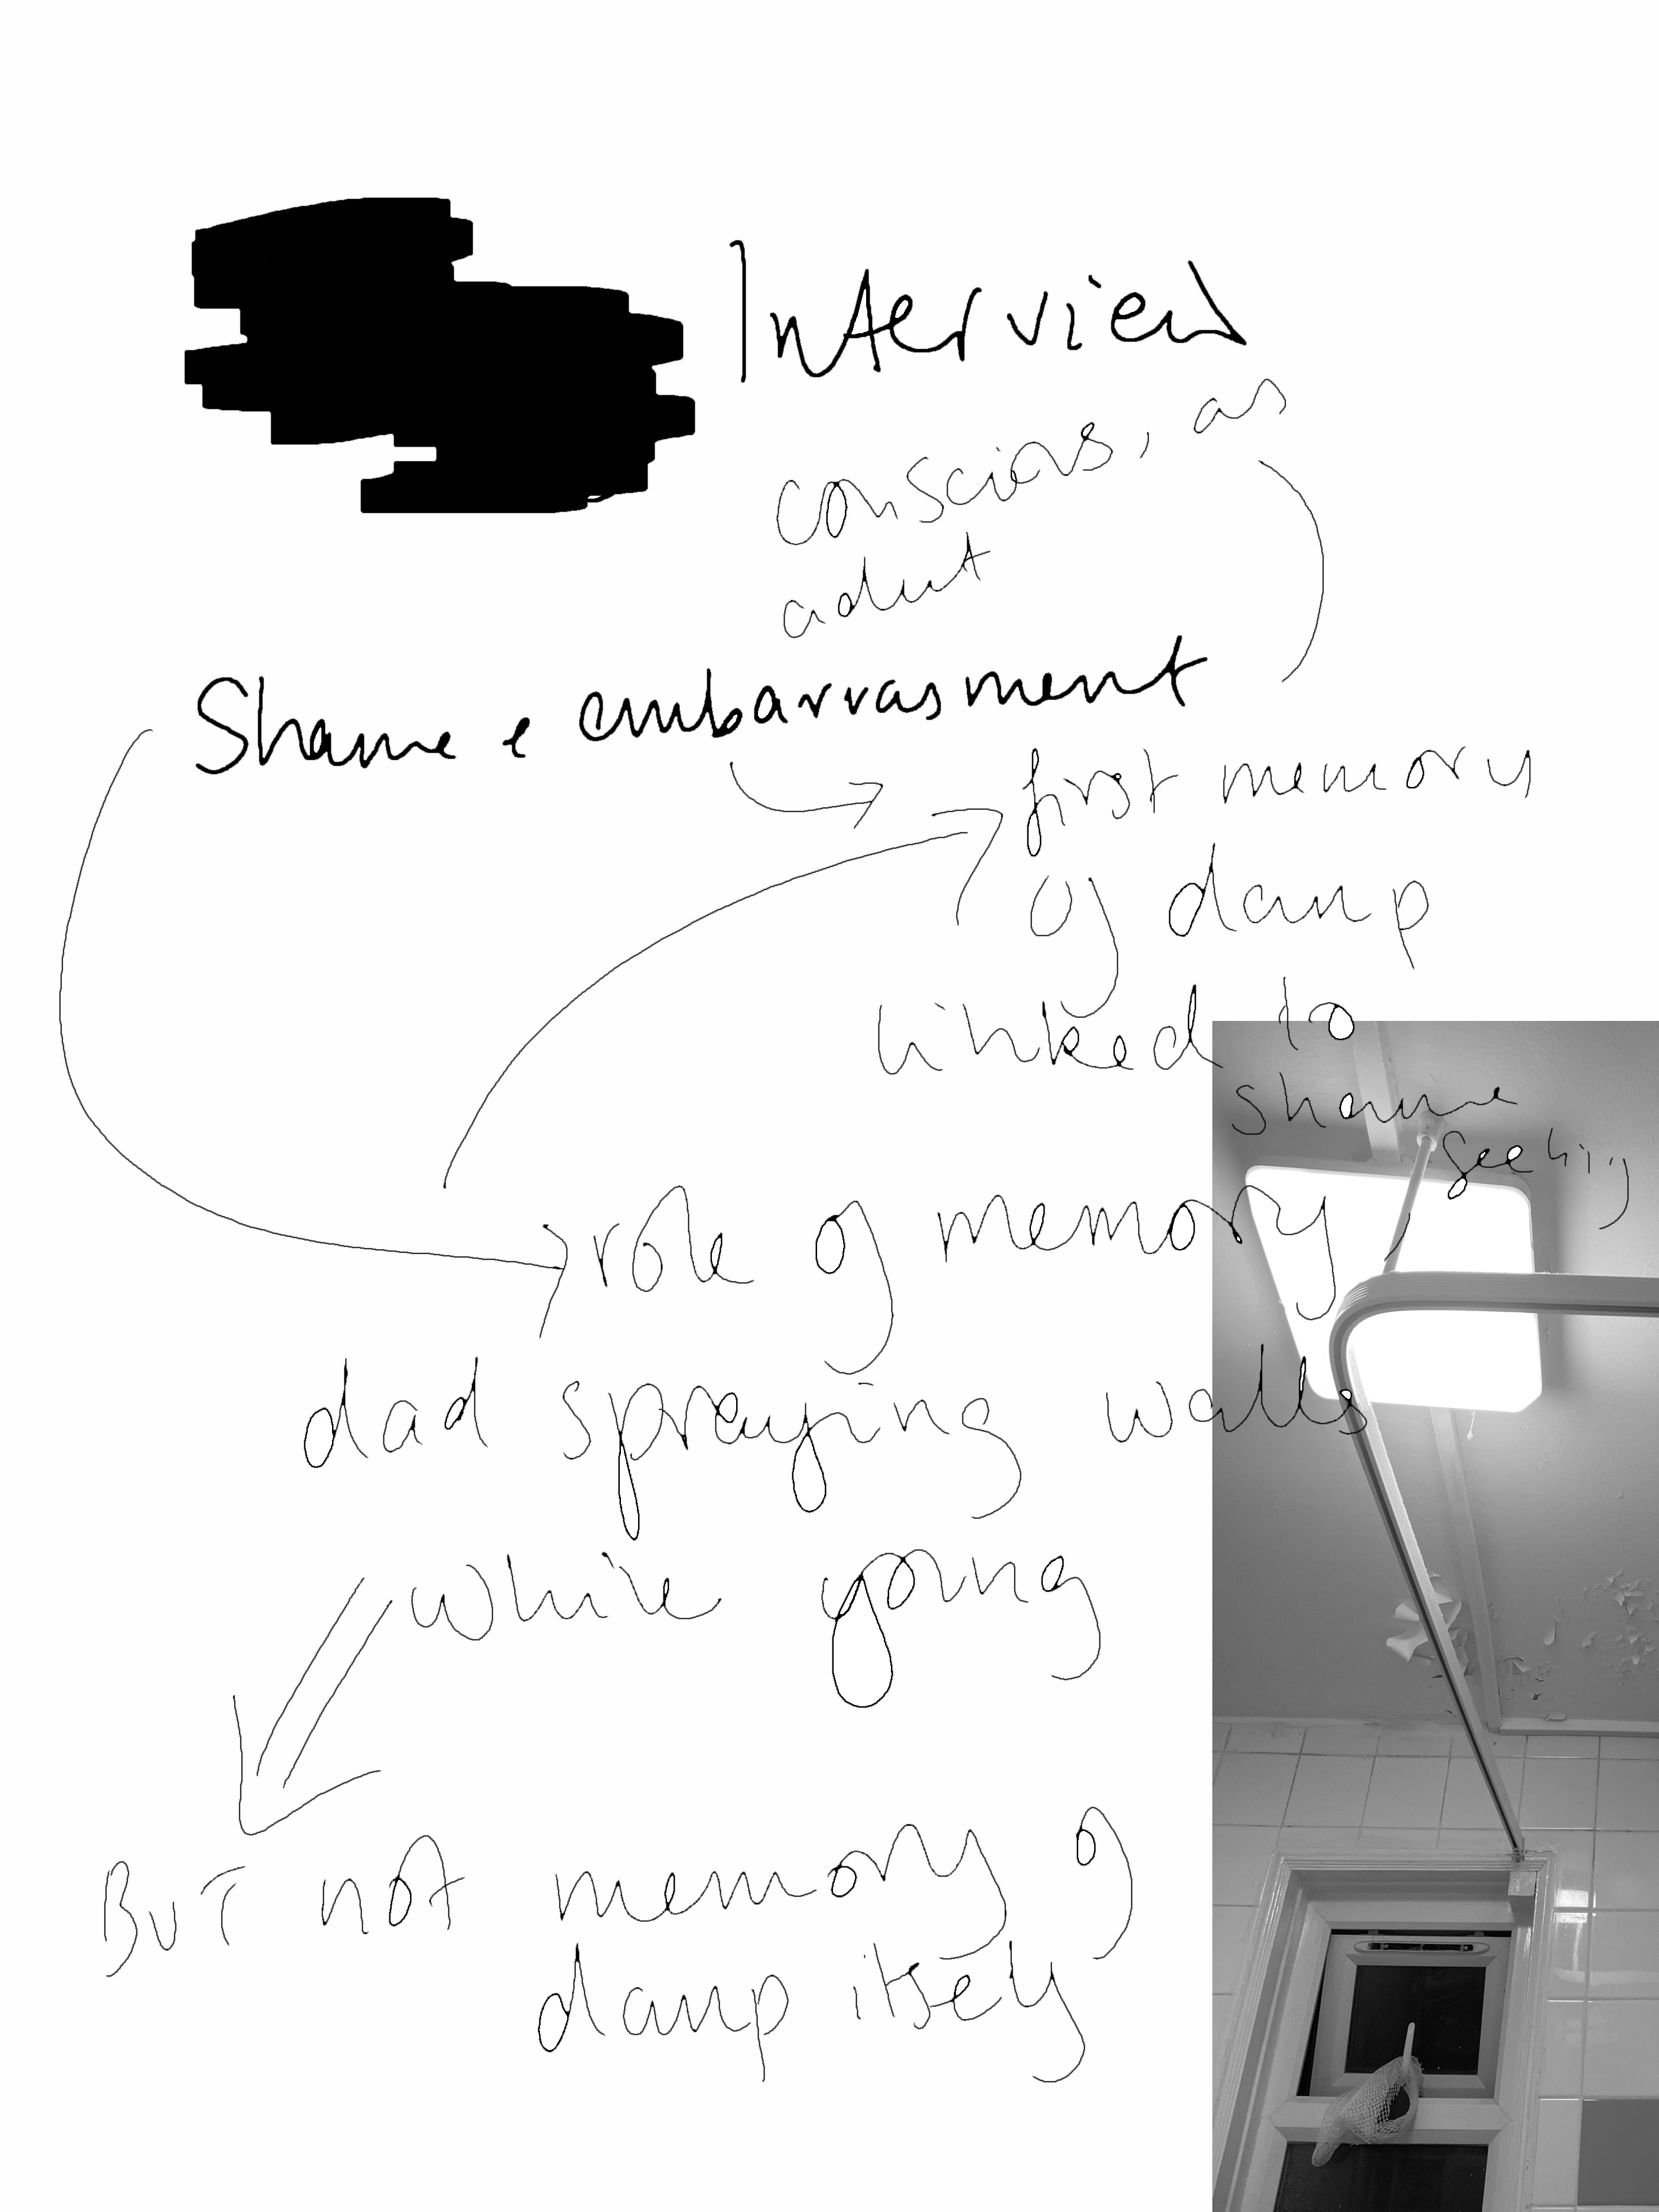 Interview
conscious, as
adult
Shame & embarrasment
first memory
of damp
linked to
shame
feeling
role of memory,
dad spraying walls
while young
BUT not memory of
damp itself